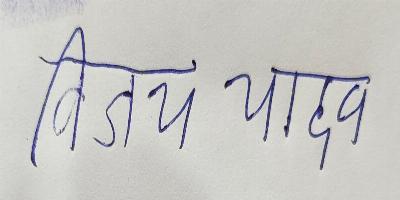 विजय यादव